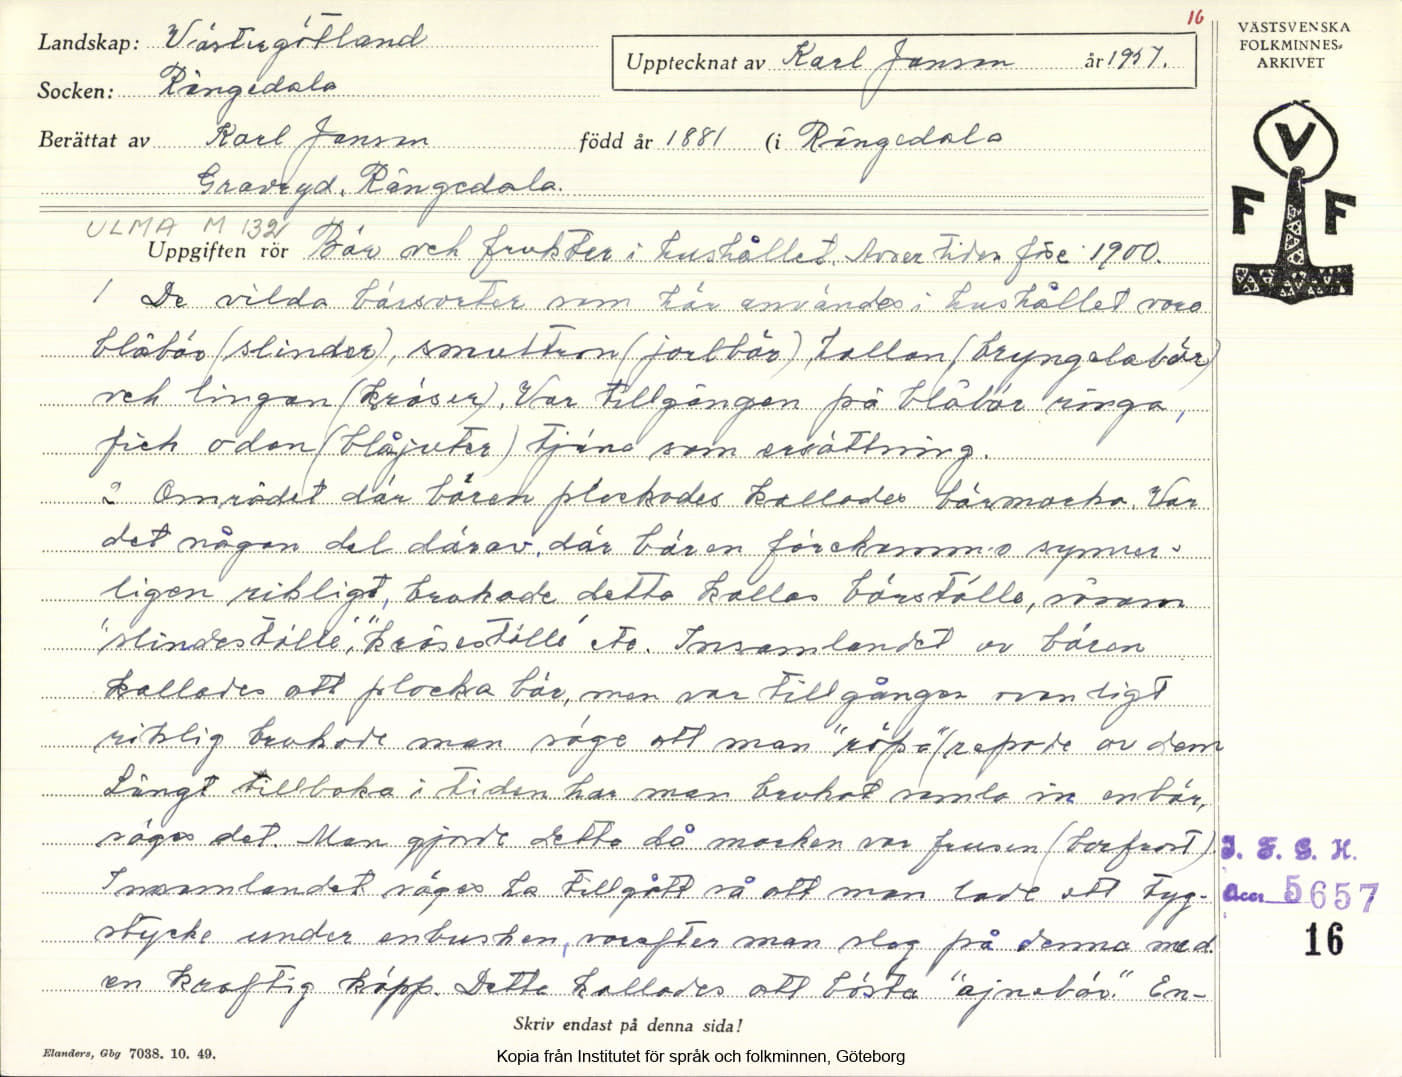 16
Landskap: Västergötland
Upptecknat av Karl Janson år 1957.
Socken: Rångedala
Berättat av Karl Janson född år 1881 (i Rångedala
Gravryd. Rångedala.
VÄSTSVENSKA
FOLKMINNES-
ARKIVET
V
F F
ULMA M 132
Uppgiften rör Bär och frukter i hushållet. Avser tiden före 1900.
1 De vilda bärsorter som här användes i hushållet voro
blåbär (slinder), smultron (jordbär), hallon, (bryngelabär)
och lingon (kröser). Var tillgången på blåbär ringa,
fick odon (blåjuter) tjäna som ersättning.
2 Området där bären plockades kallades bärmarka. Var
det någon del därav, där bären förekommo synner-
ligen rikligt, brukade detta kallas bärställe, såsom
"slindeställe", "kröseställe" etc. Insamlandet av bären
kallades att plocka bär, men var tillgången ovanligt
riklig brukade man säga att man "röpa" (repade av dem
Långt tillbaka i tiden har man brukat samla in enbär,
säges det. Man gjorde detta då marken var frusen (barfrost).
Insamlandet säges ha tillgått så att man lade ett tyg-
stycke under enbusken, varefter man slog på denna med
en kraftig käpp. Detta kallades att bösta "ajnebär". En-
I. F. G. H.
Acc. 5657
16
Skriv endast på denna sida!
Elanders, Gbg 7038. 10. 49.
Kopia från Institutet för språk och folkminnen, Göteborg